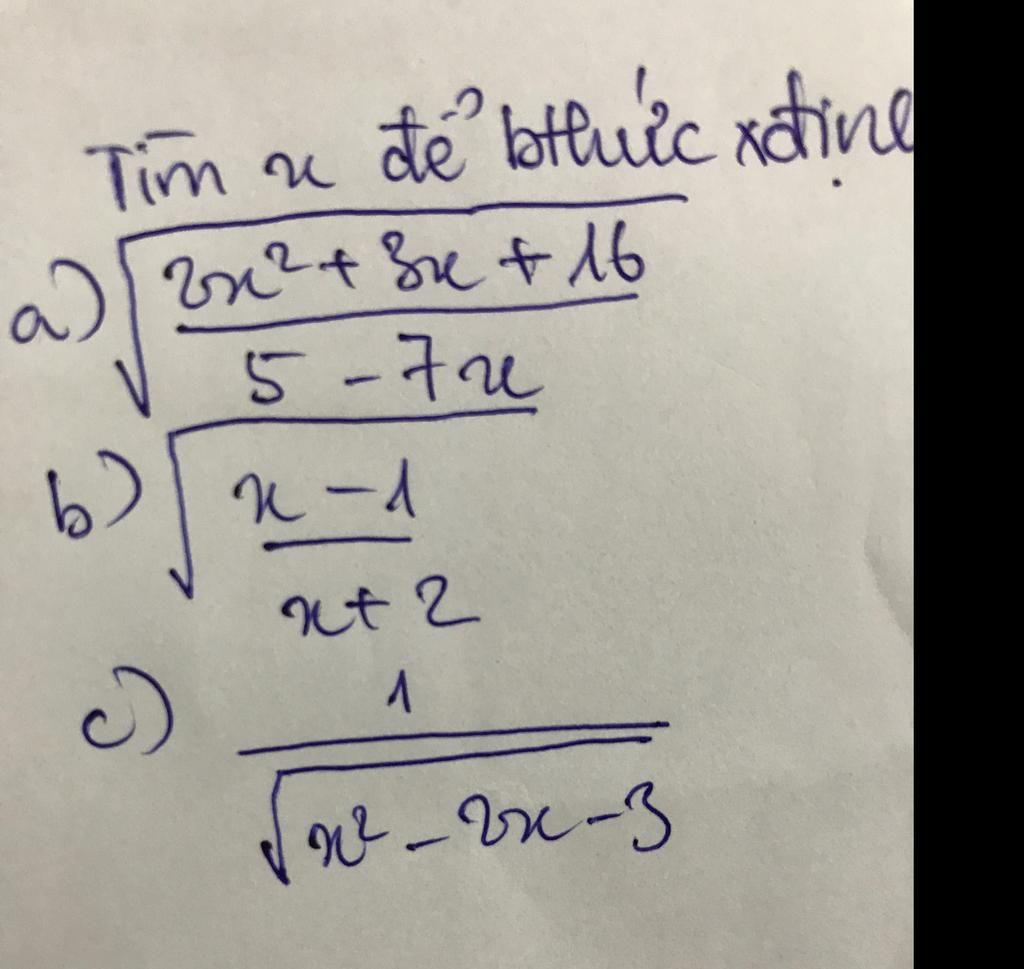 Tìm x để bthức xđịnh
a) √(2x² + 3x + 16 / 5 - 7x)
b) √(x - 1 / x + 2)
c) 1 / √(x² - 2x - 3)